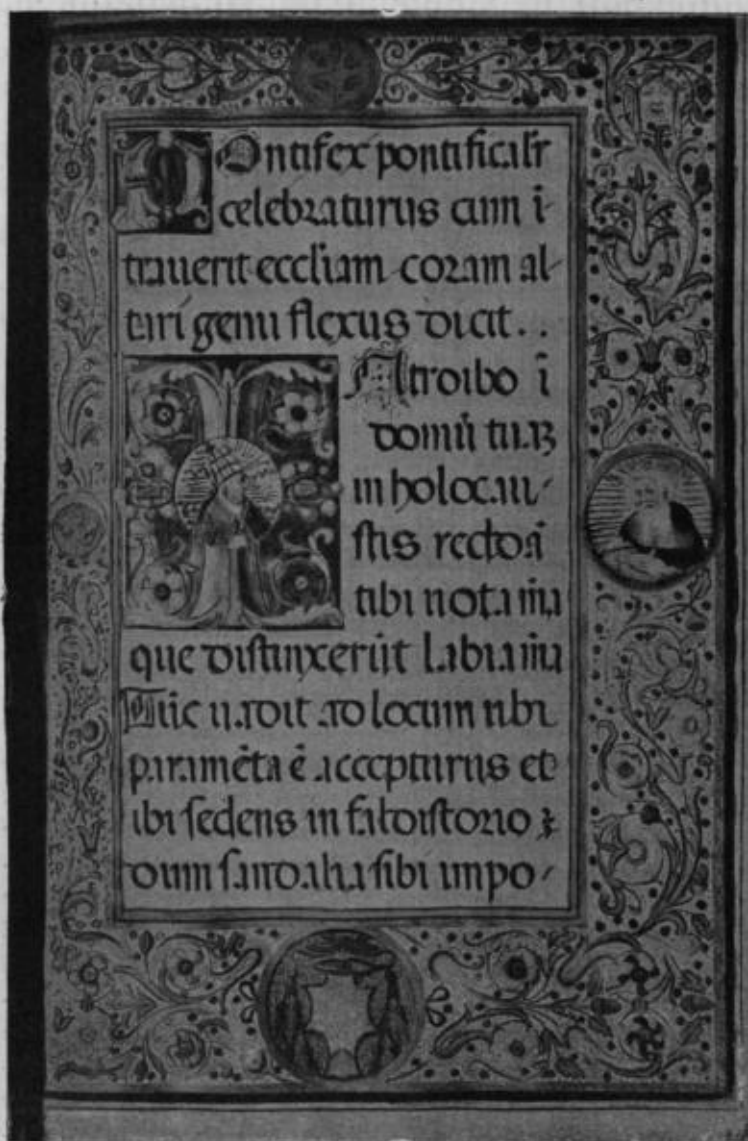 Pontifex pontificalr̃
celebraturus cum ĩ
trauerit eccl̃iam coram al
tari genu flexus dicit..
Introibo ĩ
domũ tuã
in holocau
stis reddã
tibi uota m̃a
que distinxerũt labia m̃a
Tũc uadit ad locum ubi
paramẽta ẽ accepturus et
ibi sedens in faldistorio ꝛ
dum sandalia sibi impo